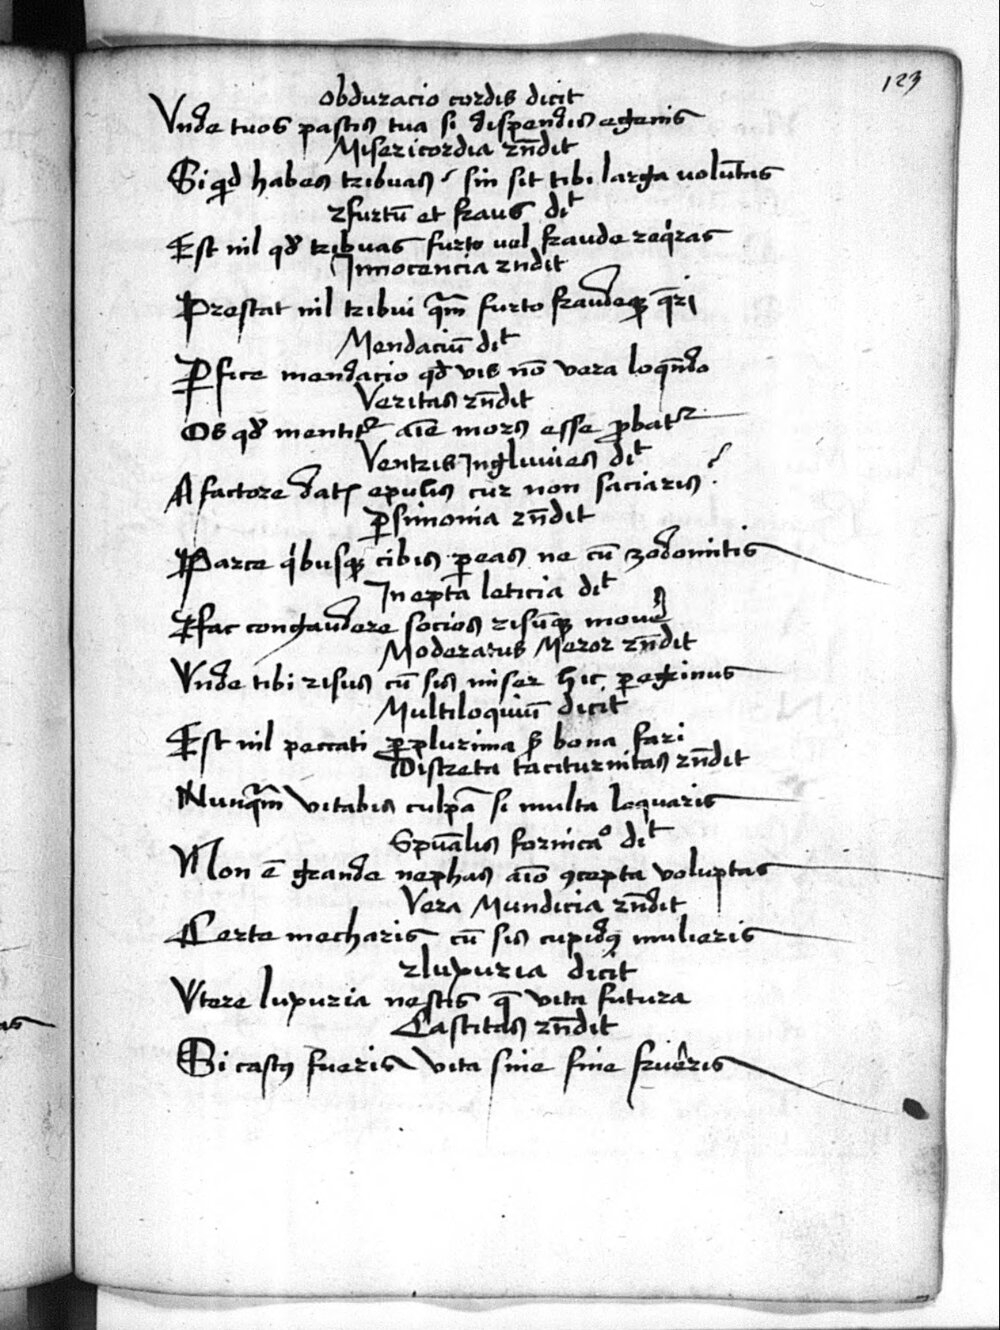 123
Obduracio cordis dicit
Vnde tuos pastis tua si dispendis egenis
Misericordia rn̄dit
Si qd habes tribuas / sin sit tibi larga volūtas
furtū et fraus dit
Est nil qd tribuas furto vel fraude reqͥras
Innocencia rndit
Prestat nil tribui qͣm furto fraudeqꝫ q̄ri
Mendaciū dit
ꝓfice mendacio qd vis nō vera loqn̄do
Veritas rn̄dit
Os qd mentitᷣ aīe mors esse ꝓbatᷣ
Ventris Ingluuies dit
A factore datꝭ epulis cur non saciaris ?
ꝑsimonia rn̄dit
Parce qͥbusqꝫ cibis ꝑeas ne cū zodomitis
Inepta leticia dit
fac congaudere socios risūqꝫ moue
Moderatus Meror rn̄dit
Vnde tibi risus cū sis miser hic ꝑegrinus
Multiloquiū dicit
Est nil peccati ꝑplurima bona fari
Discreta taciturnitas rn̄dit
Nunqͣm vitabis culpā si multa loquaris
Spūalis fornicaͦ dit
Non ē grande nephas aīo ꝯcepta voluptas
Vera Mundicia rn̄dit
Certe mecharis cū sis cupidꝰ mulieris
luxuria dicit
Vtere luxuria nescis q̄ vita futura
Castitas rn̄dit
Si castꝰ fueris vita sine fine frueris